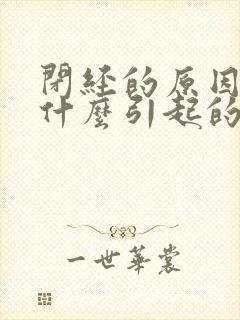 閉経的原因
什麼引起的
一世華裳